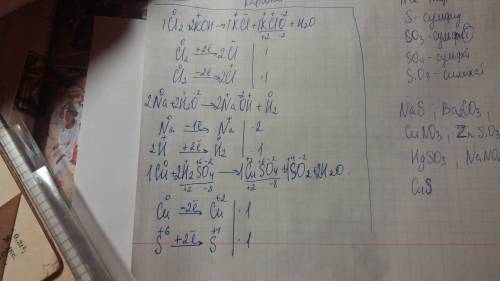 1Cl₂+2KOH→1KCl+1KClO+H₂O
Cl₂ +2ē→ 2Cl | 1
Cl₂ -2ē→ 2Cl | ·1
2Na+2H₂O→2NaOH+H₂
Na -1ē→ Na | ·2
2H +2ē→ H₂ | ·1
1Cu+2H₂SO₄→1CuSO₄+1SO₂+2H₂O
Cu -2ē→ Cu⁺² | ·1
S⁺⁶ +2ē→ S⁺⁴ | ·1
S-сульфид
SO₄-сульфат
NaS, Ba₂SO₃,
CuNO₃, ZnSiO₃
HgSO₃, NaNO₂
CuS